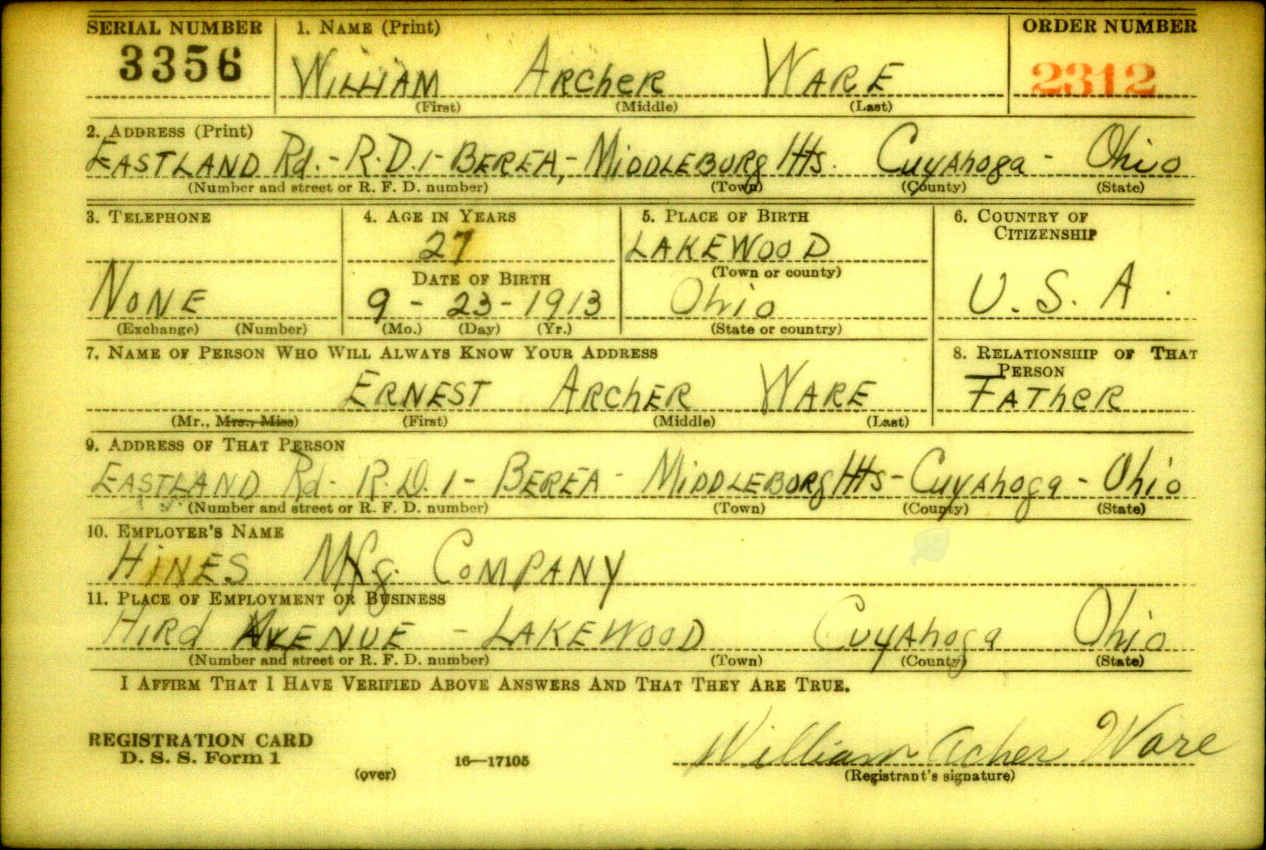 SERIAL NUMBER 1. NAME (Print) ORDER NUMBER
3356 WILLIAM ARCHER WARE 2312
(First) (Middle) (Last)
2. ADDRESS (Print)
EASTLAND Rd. - R.D.1 - BEREA, - MIDDLEBURG Hts. CUYAhogA - Ohio
(Number and street or R. F. D. number) (Town) (County) (State)
3. TELEPHONE 4. AGE IN YEARS 5. PLACE OF BIRTH 6. COUNTRY OF
CITIZENSHIP
27 LAKEWOOD
DATE OF BIRTH (Town or county)
NONE 9 - 23 - 1913 Ohio U. S. A.
(Exchange) (Number) (Mo.) (Day) (Yr.) (State or country)
7. NAME OF PERSON WHO WILL ALWAYS KNOW YOUR ADDRESS 8. RELATIONSHIP OF THAT
PERSON
ERNEST ARCHER WARE FATHER
(Mr., Mrs., Miss) (First) (Middle) (Last)
9. ADDRESS OF THAT PERSON
EASTLAND Rd - R.D.1 - BEREA - MIDDLEBORG Hts - CUYAhogA - Ohio
(Number and street or R. F. D. number) (Town) (County) (State)
10. EMPLOYER'S NAME
HINES Mfg. COMPANY
11. PLACE OF EMPLOYMENT OR BUSINESS
HIRD AVENUE - LAKEWOOD CUYAhogA Ohio
(Number and street or R. F. D. number) (Town) (County) (State)
I AFFIRM THAT I HAVE VERIFIED ABOVE ANSWERS AND THAT THEY ARE TRUE.
REGISTRATION CARD
D. S. S. Form 1 16—17105 William Acher Ware
(over) (Registrant's signature)